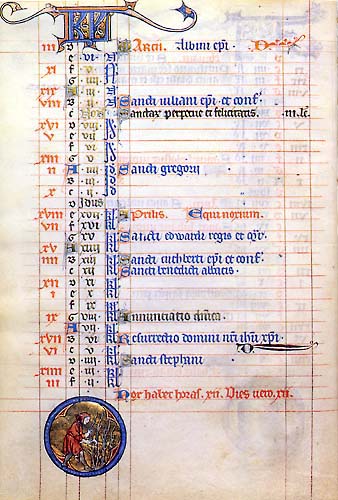 KL
iii D Marcii. Albini epi.
e vi N
xi f v N
g iiii N
xix A iii N
viii b ii N Sancti iuliani epi et conf.
c Non Sanctar perpetue et felicitatis. m. lc.
xvi D viii Id
v e vii Id
f vi Id
xiii g v Id
ii A iiii Id Sancti gregorii
b iii Id
c ii Id
D Idus
xviii e xvii kl Aprilis. Equinoxium.
vii f xvi kl
g xv kl Sancti edwardi regis et
xv A xiiii kl
iiii b xiii kl Sancti cuthberti epi et conf.
c xii kl Sancti benedicti abbatis.
xii D xi kl
i e x kl
f ix kl
ix g viii kl Annunciatio dnica.
A vii kl
xvii b vi kl Resurrectio domini nri ihu xpi.
vi c v kl
D iiii kl Sancti stephani
xiiii e iii kl
iii f ii kl
Nox habet horas .xii. Dies uero .xii.